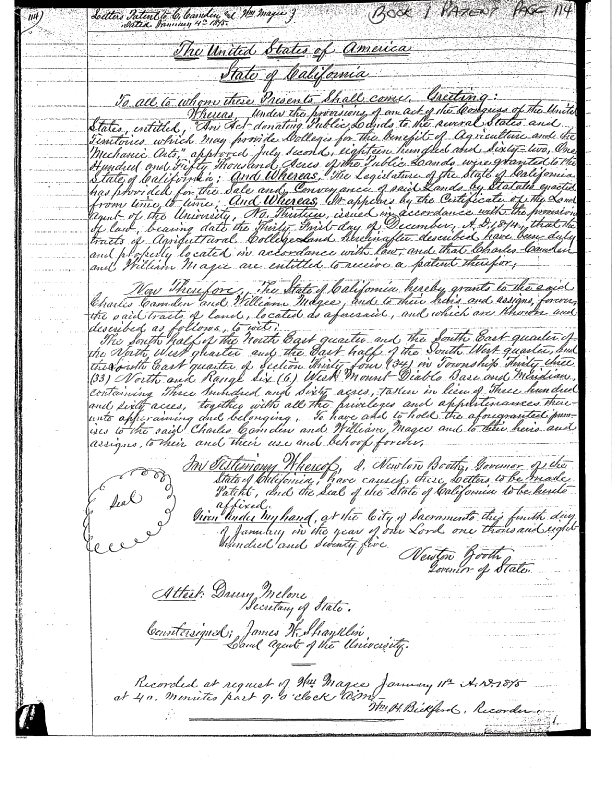 114)
Letters Patent to C. Camden and Wm Magee }
Dated January 4th 1875.
BOOK 1 PATENT PAGE 114
The United States of America
State of California
To all to whom these Presents Shall come, Greeting:
Whereas, Under the provisions of an act of the Congress of the United
States, entitled, "An Act donating Public Lands to the several States and
Territories which may provide Colleges for the benefit of Agriculture and the
Mechanic Arts," approved July second, eighteen hundred and sixty-two, One
Hundred and Fifty Thousand Acres of the Public Lands were granted to the
State of California; And Whereas, The Legislature of the State of California
has provided for the Sale and Conveyance of said Lands by Statutes enacted
from time to time; And Whereas, It appears by the Certificate of the Land
agent of the University, No. Thirteen, issued in accordance with the provisions
of law, bearing date the Thirty First day of December, A.D. 1874, that the
tracts of Agricultural College Land hereinafter described have been duly
and properly located in accordance with law, and that Charles Camden
and William Magee are entitled to receive a patent therefor,
Now Therefore, The State of California hereby grants to the said
Charles Camden and William Magee, and to their heirs and assigns, forever,
the said tracts of land, located as aforesaid, and which are known and
described as follows, to wit:
The South half of the North East quarter and the South East quarter of
the North West quarter and the East half of the South West quarter, and
the South East quarter of Section Thirty Four (34) in Township Thirty three
(33) North and Range Six (6) West Mount Diablo Base and Meridian,
containing Three hundred and Sixty acres, taken in lieu of Three hundred
and sixty acres, together with all the privileges and appurtenances there-
unto appertaining and belonging, To have and to hold the aforegranted prem-
ises to the said Charles Camden and William Magee and to their heirs and
assigns, to their and their use and behoof forever.
In Testimony Whereof, I, Newton Booth, Governor of the
State of California, have caused these Letters to be made
Patent, and the Seal of the State of California to be hereto
affixed.
Seal
Given under my hand, at the City of Sacramento, this fourth day
of January in the year of our Lord one thousand eight
hundred and seventy five.
Newton Booth
Governor of State.
Attest: Drury Melone
Secretary of State.
Countersigned: James W. Shanklin
Land Agent of the University.
Recorded at request of Wm Magee January 11th A.D. 1875
at 40 minutes past 9 o'clock A.M.
Wm H. Bickford, Recorder.